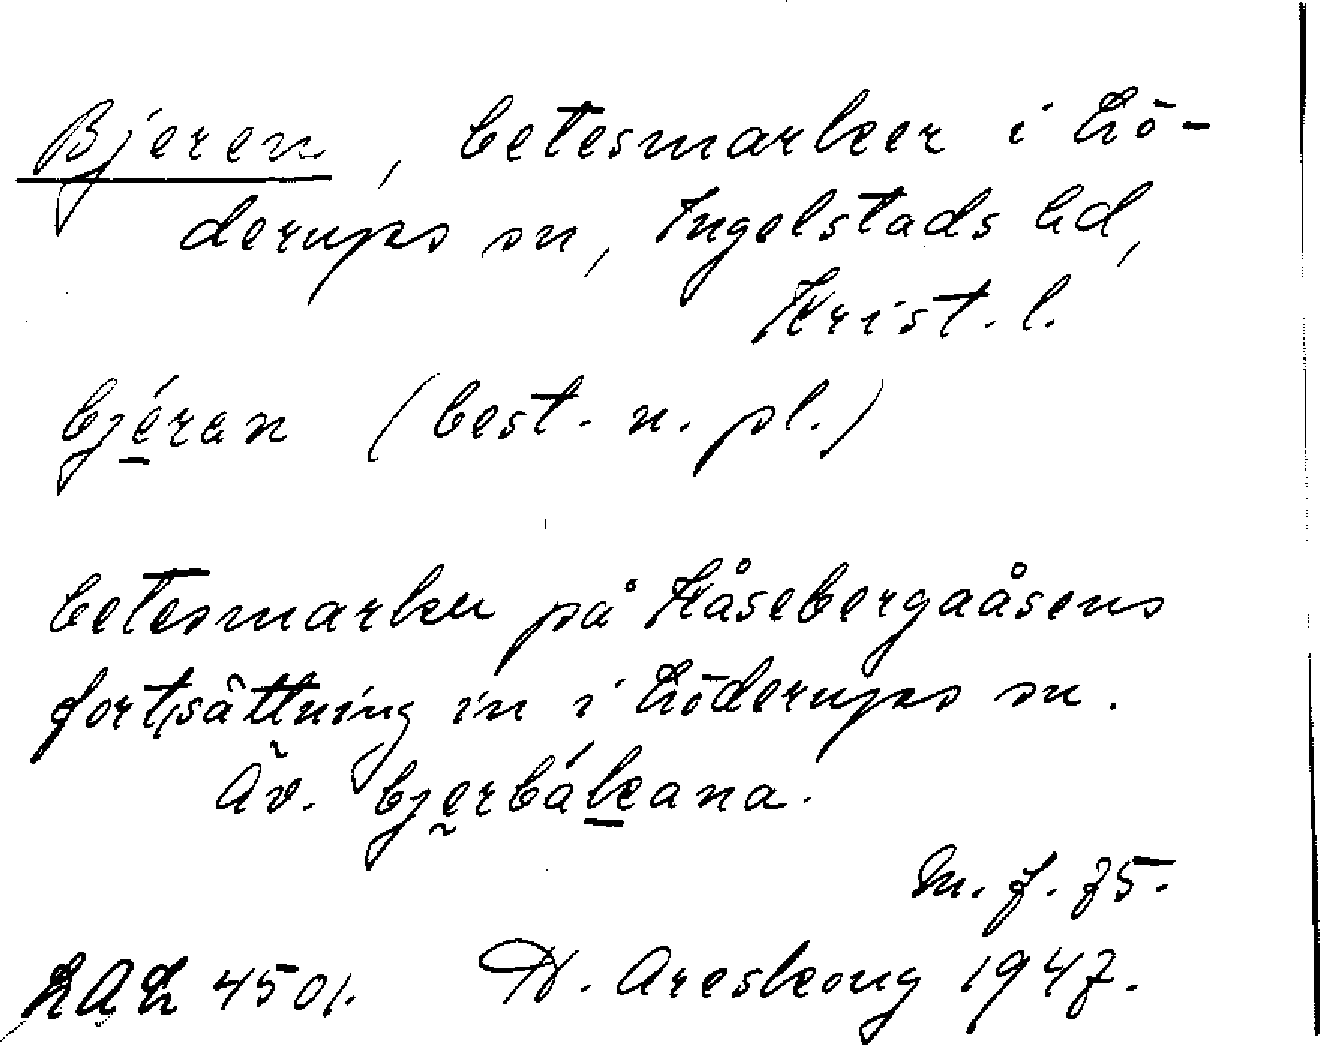 Bjeren, betesmarker i Lö-
derups sn, Ingelstads hd,
Krist. l.
bjéran (best. n. pl.)
betesmarker på Kåsebergaåsens
fortsättning in i Löderups sn.
Äv. bjerbálkana.
M. f. 75.
LAL 4501. D. Areskoug 1947.